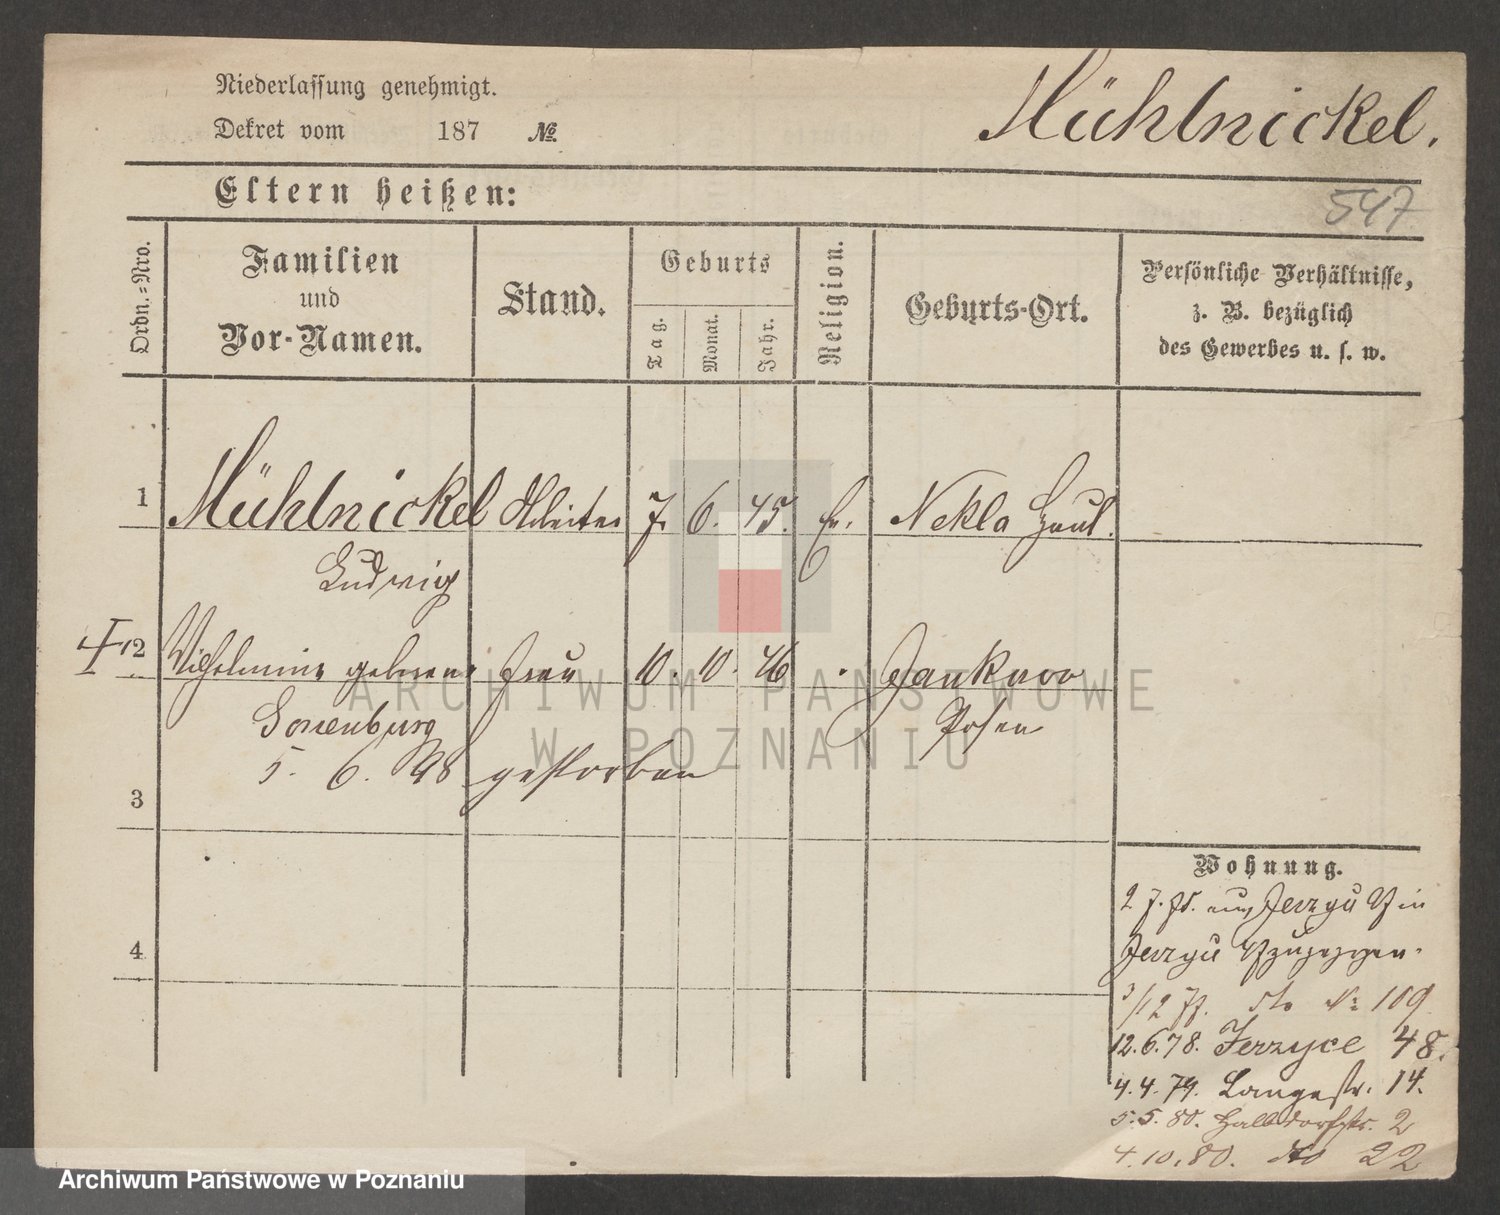 Niederlassung genehmigt.
Dekret vom 187 No
Mühlnickel.
Eltern heißen:
547
Ordn.-Nro.
Familien
und
Vor-Namen.
Stand.
Geburts
Tag.
Monat.
Jahr.
Religion.
Geburts-Ort.
Persönliche Verhältnisse,
z. B. bezüglich
des Gewerbes u. s. w.
1 Mühlnickel Arbeiter 7. 6. 45. Ev. Nekla Haul.
Ludwig
2 Wilhelmine geborene Frau 10. 10. 46
Posen
5. 6. 98 gestorben
3
4
Wohnung.
Jerzyce 
3/12 77. dto No 109
12.6.78. Jerzyce 48.
4.4.79. Langestr. 14.
5.5.80. Halbdorfstr. 2
4.10.80. dto 22
ARCHIWUM PAŃSTWOWE
W POZNANIU
Archiwum Państwowe w Poznaniu